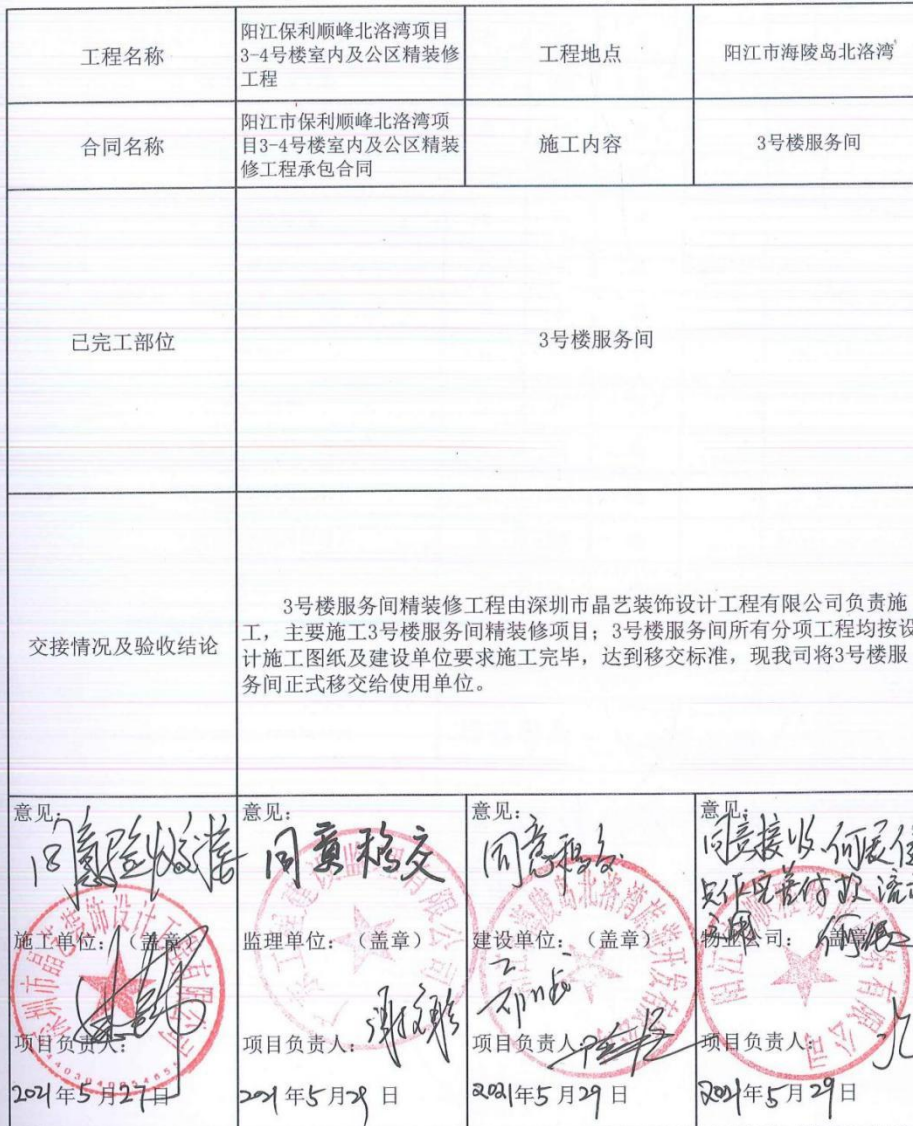 工程名称
阳江保利顺峰北洛湾项目
3-4号楼室内及公区精装修
工程
工程地点
阳江市海陵岛北洛湾
合同名称
阳江市保利顺峰北洛湾项
目3-4号楼室内及公区精装
修工程承包合同
施工内容
3号楼服务间
已完工部位
3号楼服务间
交接情况及验收结论
3号楼服务间精装修工程由深圳市晶艺装饰设计工程有限公司负责施
工，主要施工3号楼服务间精装修项目；3号楼服务间所有分项工程均按设
计施工图纸及建设单位要求施工完毕，达到移交标准，现我司将3号楼服
务间正式移交给使用单位。
意见：
同意验收交接
施工单位：（盖章）
深圳市晶艺装饰设计工程有限公司
项目负责人：
2021年5月27日
意见：
同意移交
监理单位：（盖章）
项目负责人：
2021年5月29日
意见：
同意移交
建设单位：（盖章）
项目负责人：
2021年5月29日
意见：
同意接收
物业公司：（盖章）
项目负责人：
2021年5月29日